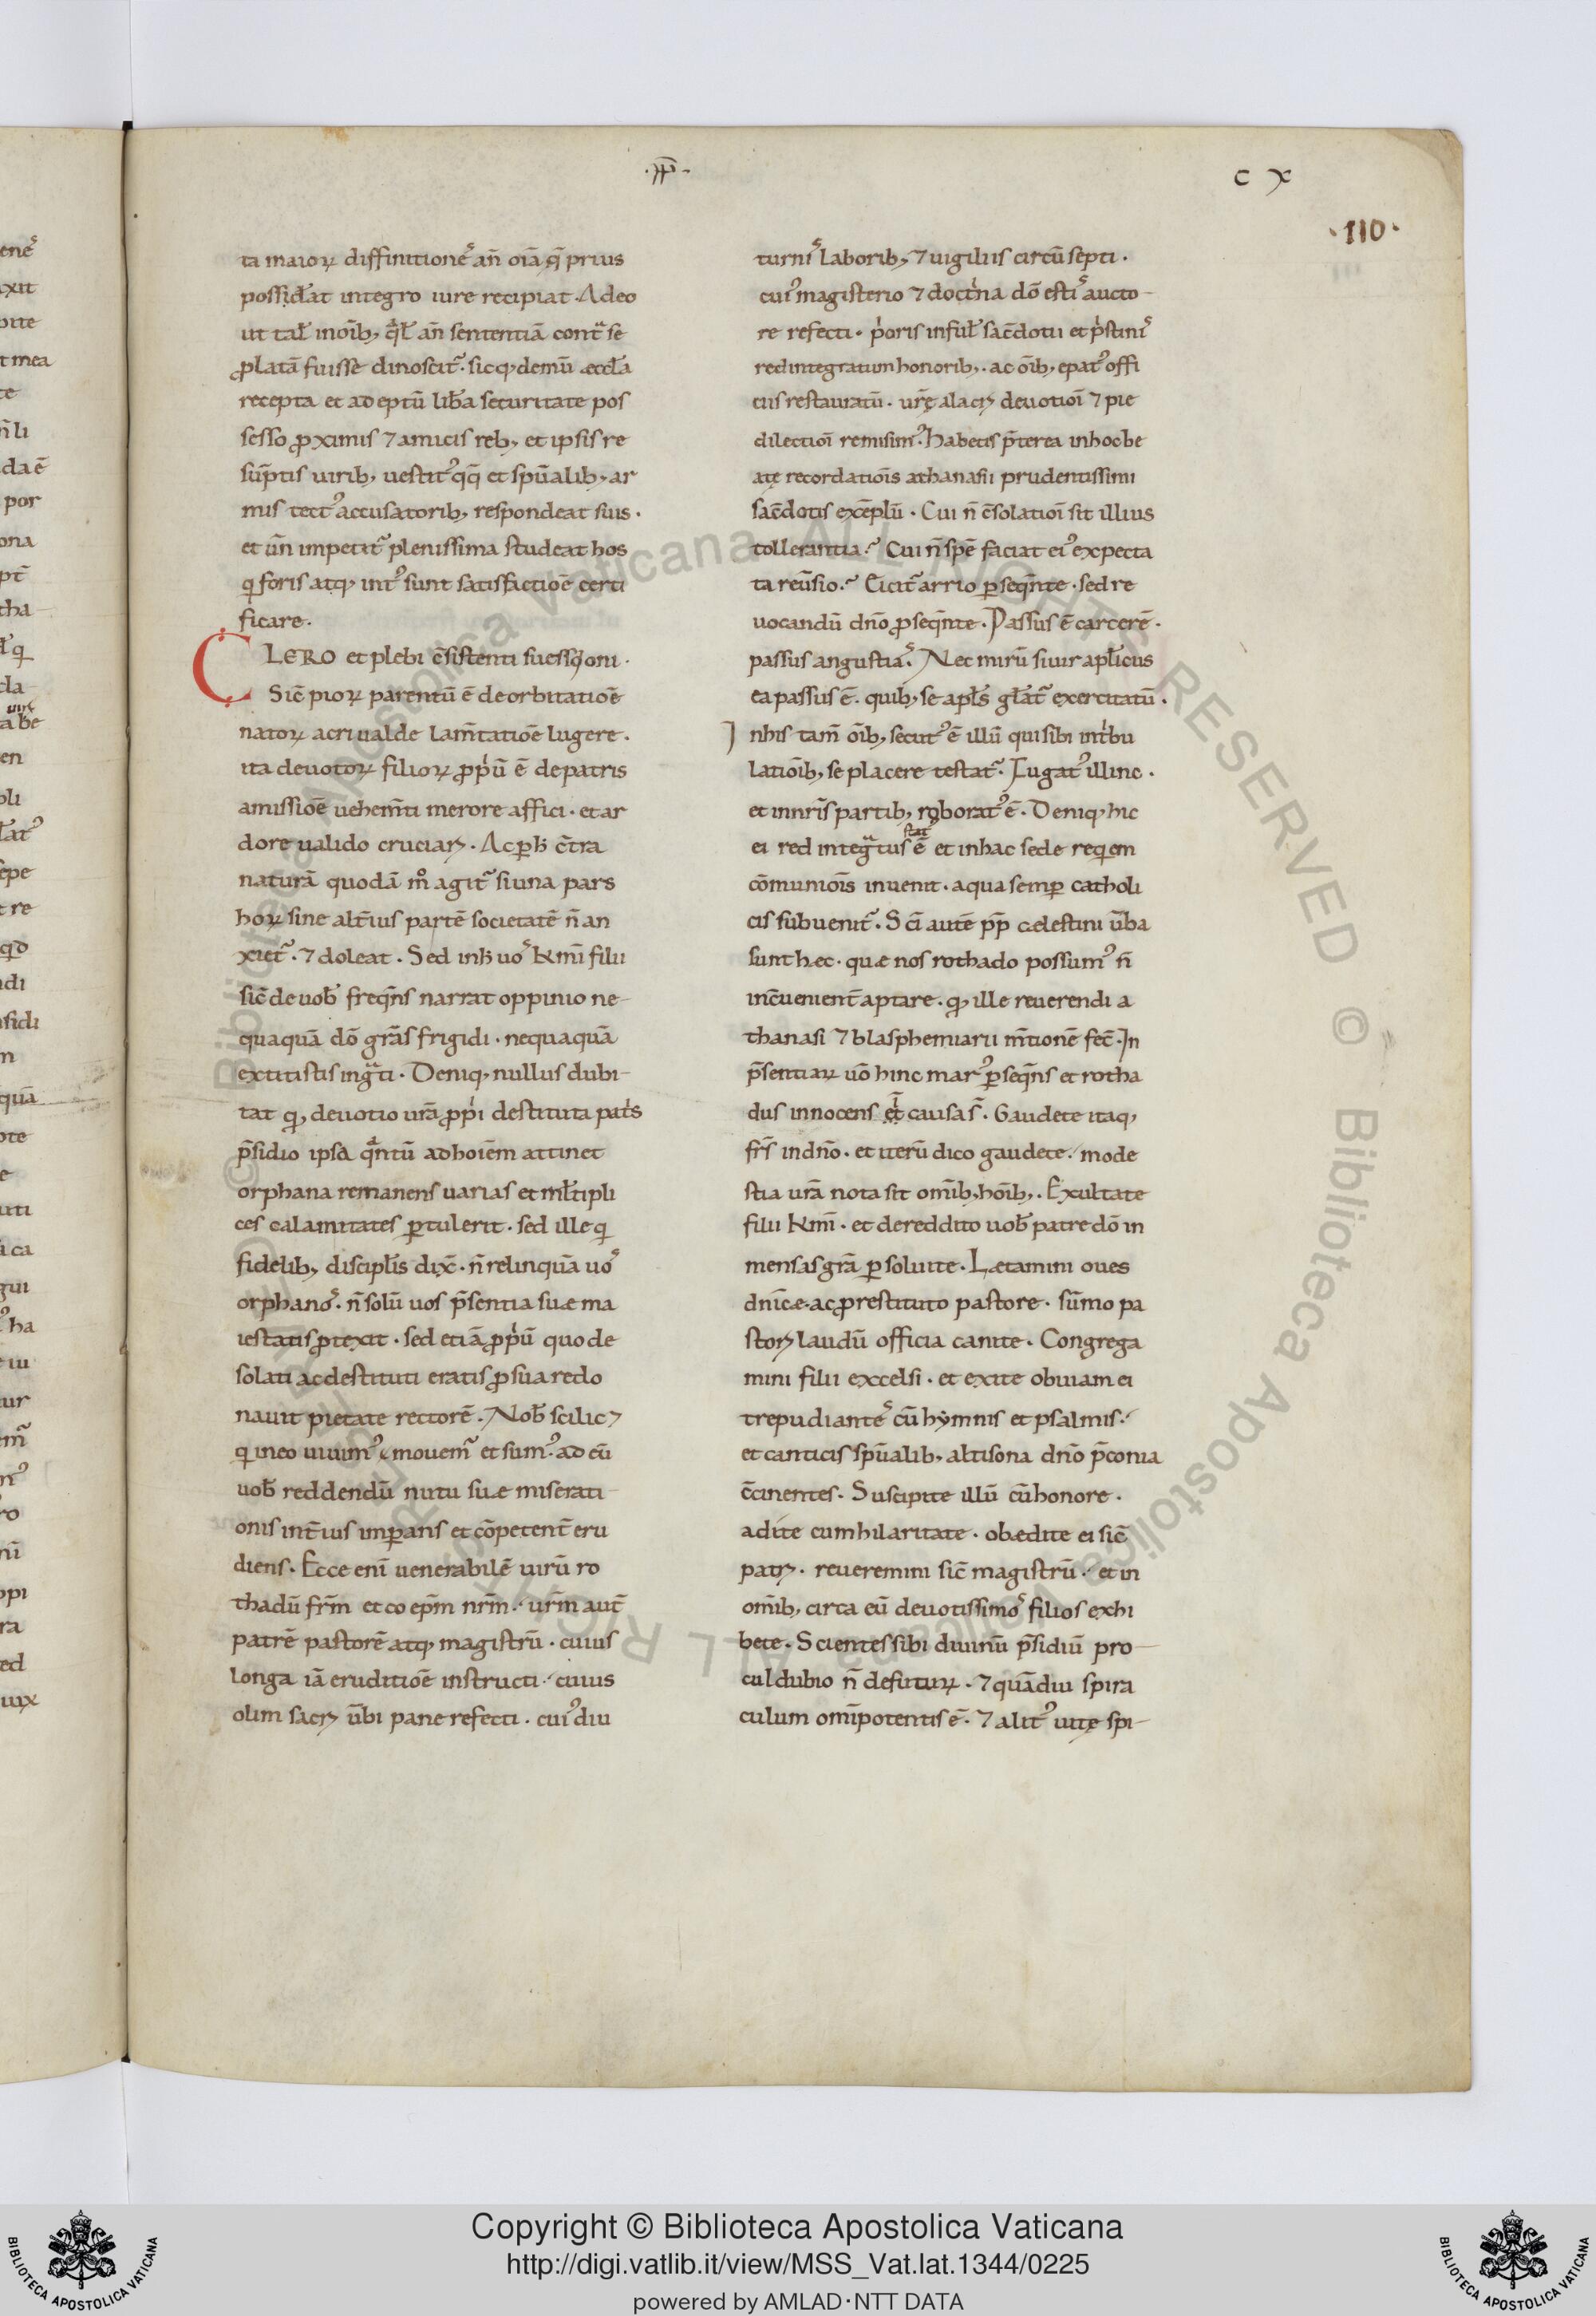 ·PP·
C X
·110·
ta maioꝝ diffinitione᷒ an̄ oīa q̄ prius
possid̄at integro iure recipiat. Adeo
ut tal̄ inoīb; q̄l̄ an̄ sententiā cont̄ se
ꝓlatā fuisse dinoscit̄. sicq; demū æccl̄a
recepta et ad eptū lib̄a securitate pos
sesso ꝓximis ⁊ amicis reb; et ipsis re
sūptis uirib; uestitꝰ qq̄ et spūalib; ar
mis tectꝰ accusatorib; respondeat suis.
et ūn impetit̄ plenissima studeat hos
q foris atq; intꝰ sunt satisfactiōe certi
ficare.
CLERO et plebi c̄sistenti suessꝗoni.
Sic̄ pioꝝ parentū ē de orbitatiōe
natoꝝ acri ualde lam̄tatiōe lugere.
ita deuotoꝝ filioꝝ ꝓpiū ē de patris
amissiōe uehem̄ti merore affici. et ar
dore ualido cruciari. Ac ꝑh̄ c̄tra
naturā quodā mº agit̄ si una pars
hoꝝ sine alt̄ius partē societatē n̄ an
xiet̄. ⁊ doleat. Sed inh̄ uo᷒ km̄i filii
sic̄ de uob̄ freq̄ns narrat oppinio ne-
quaquā dō grās frigidi. nequaquā
extitistis ingᵃti. Deniq; nullus dubi-
tat q; deuotio urā ꝓpⁱi destituta patⁱs
p̄sidio ipsa qᵃntū ad hoīem attinet
orphana remanens uarias et ml̄tipli
ces calamitates ꝑtulerit. sed ille q
fidelib; discipl̄is dix̄. n̄ relinquā uo᷒
orphano᷒. n̄ solū uos p̄sentia suæ ma
iestatis ꝓtexit. sed etiā ꝓpⁱū quo de
solati ac destituti eratis ꝓ sua redo
nauit pietate rectorē. Nob̄ scilic⁊
q in eo uiuimꝰ mouem̄ et sumꝰ. ad eū
uob̄ reddendū nutu suæ miserati-
onis int̄ius imꝑans et cōpetent̄ eru
diens. Ecce enī uenerabilē uirū ro
thadū fr̄m et co ep̄m nr̄m. ur̄m aut̄
patrē pastorē atq; magistrū. cuius
longa iā eruditiōe instructi. cuius
olim sacri ūbi pane refecti. cuiꝰ diu
turni᷒ laborib; ⁊ uigiliis circū septi.
cuiꝰ magisterio ⁊ doctⁱna dō esti᷒ aucto-
re refecti. pⁱoris inful̄ sac̄dotii et pⁱstini᷒
redintegratum honorib;. ac ōib; epatꝰ offi
ciis restauratū. ur̄ę alacri deuotioī ⁊ pie
dilectioī remisimꝰ. Habetis p̄terea in hoc be
atę recordatiōis athanasii prudentissimi
sac̄dotis exēplū. Cui n̄ c̄solatioī sit illius
tollerantia? Cui n̄ spē faciat eiꝰ expecta
ta reūsio? Eicit̄ arrio ꝑseq̄nte. sed re
uocandū dn̄o ꝓseq̄nte. Passus ē carcerē.
passus angustia᷒. Nec mirū si uir apl̄icus
ea passus ē. quib; se apl̄s gl̄at̄ exercitatū.
In his tam̄ ōib; secutꝰ ē illū qui sibi in tⁱbu
latiōib; se placere testat̄. Fugatꝰ illinc.
et in nr̄is partib; roboratꝰ ē. Deniq; hic
stat
ei red integᵃtus ē et in hac sede reqem
cōmuniōis inuenit. a qua semꝑ catholi
cis subuenit̄. Sc̄i autē pp̄ cælestini ūba
sunt hæc. quæ nos rothado possumꝰ n̄
inc̄uenient̄ aptare. q; ille reuerendi a
thanasi ⁊ blasphemi arii m̄tionē fec̄. In
p̄sentiaꝝ uō hinc marꝰ ꝑseq̄ns et rotha
dus innocens et̄ causa s̄. Gaudete itaq;
fr̄s in dn̄o. et iterū dico gaudete. mode
stia ur̄a nota sit omīb; hoīb;. Exultate
filii km̄i. et de reddito uob̄ patre dō in
mensas gr̄a ꝑsoluite. Lætamini oues
dn̄icæ. ac ꝓ restituto pastore. sūmo pa
stori laudū officia canite. Congrega
mini filii excelsi. et exite obuiam ei
trepudiante᷒ cū hymnis et psalmis.
et canticis spūalib; altisona dn̄o p̄conia
c̄cinentes. Suscipite illū cū honore.
adite cum hilaritate. obædite ei sic̄
patri. reueremini sic̄ magistrū. et in
omīb; circa eū deuotissimo᷒ filios exhi
bete. Scientes sibi diuinū p̄sidiū pro-
cul dubio n̄ defuturꝝ. ⁊ quādiu spira
culum omīpotentis ē. ⁊ alitꝰ uitę spi-
Copyright © Biblioteca Apostolica Vaticana
http://digi.vatlib.it/view/MSS_Vat.lat.1344/0225
powered by AMLAD·NTT DATA
BIBLIOTECA APOSTOLICA VATICANA
BIBLIOTECA APOSTOLICA VATICANA